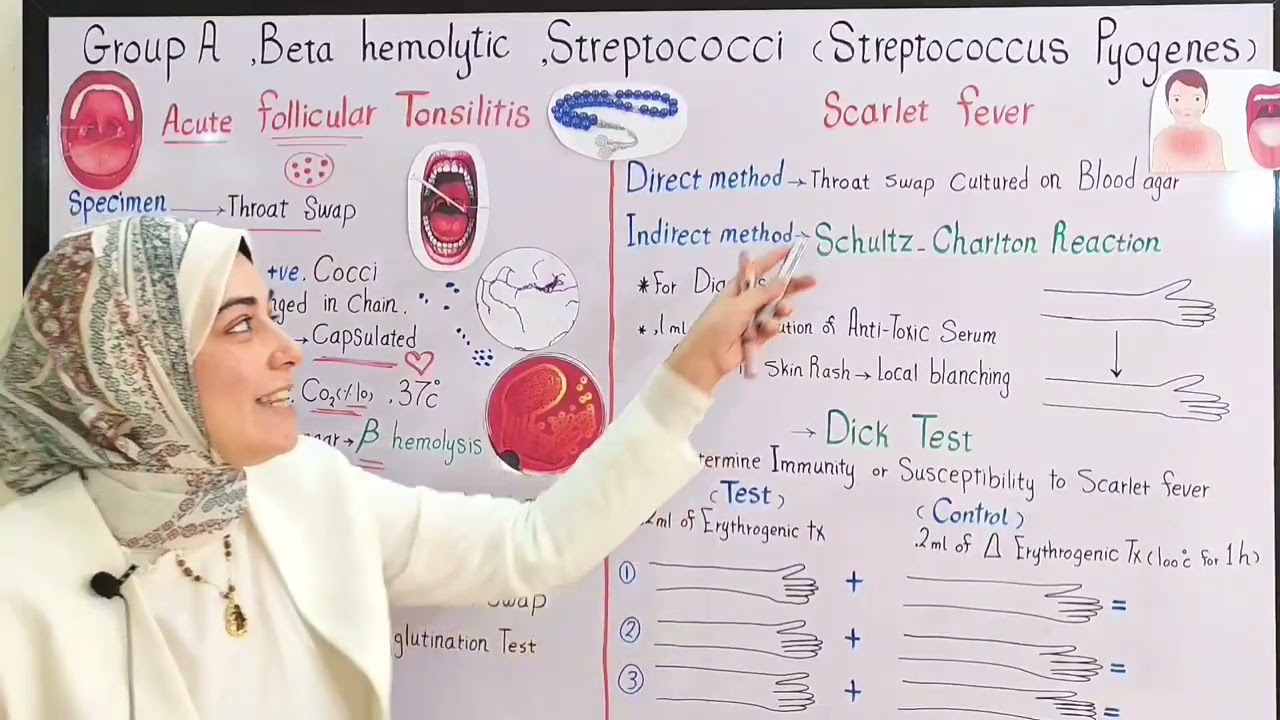 Group A , Beta hemolytic , Streptococci ( Streptococcus Pyogenes )
Acute follicular Tonsilitis
Specimen → Throat Swap
+ve. Cocci
in Chain.
→ Capsulated
Co₂ (%10) , 37°c
→ β hemolysis
Swap
glutination Test
Scarlet fever
Direct method → Throat swap Cultured on Blood agar
Indirect method → Schultz - Charlton Reaction
* For
* .1 ml of Anti-Toxic Serum
Skin Rash → Local blanching
→ Dick Test
termine Immunity or Susceptibility to Scarlet fever
( Test )
2ml of Erythrogenic tx
( Control )
.2ml of Δ Erythrogenic Tx ( 100°c for 1 h )
① + =
② + =
③ + =